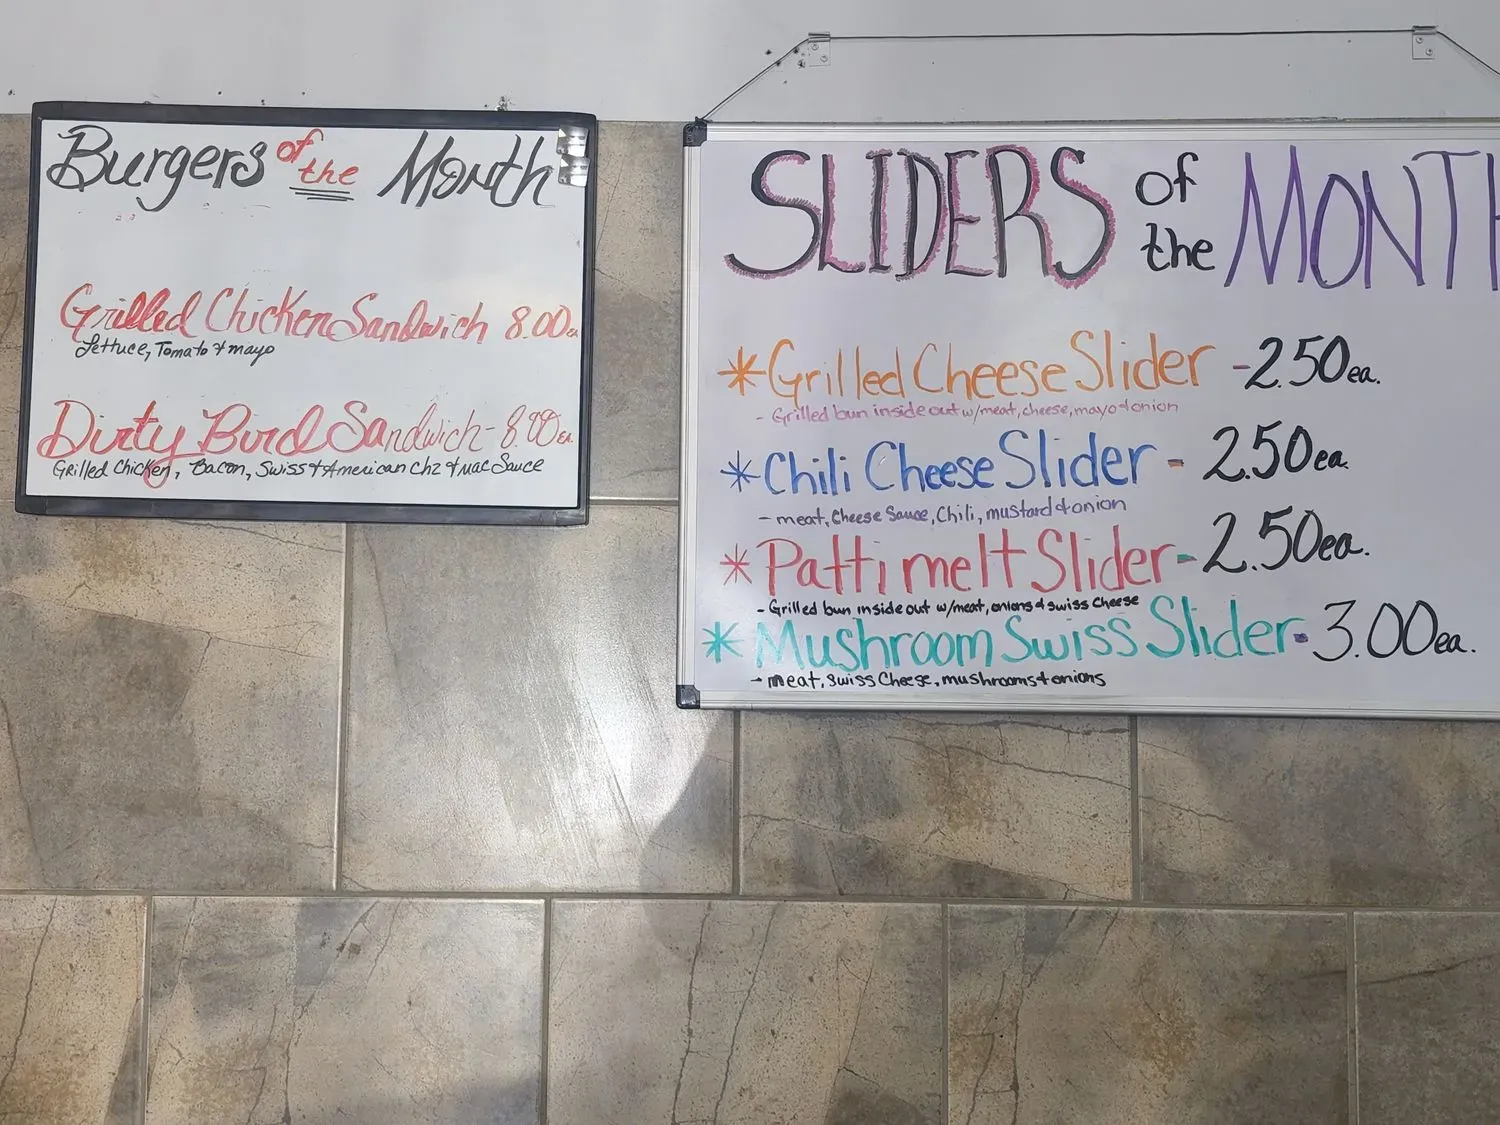 Burgers of the Month
Grilled Chicken Sandwich 8.00ea
Lettuce, Tomato & mayo
Dirty Bird Sandwich - 8.00ea.
Grilled Chicken, Bacon, Swiss & American Chz & Mac Sauce
SLIDERS of the MONTH
* Grilled Cheese Slider - 2.50ea.
- Grilled bun inside out w/meat, cheese, mayo & onion
* Chili Cheese Slider - 2.50ea.
- meat, Cheese Sauce, Chili, mustard & onion
* Patti melt Slider - 2.50ea.
- Grilled bun inside out w/meat, onions & swiss Cheese
* Mushroom Swiss Slider - 3.00ea.
- meat, swiss Cheese, mushrooms & onions